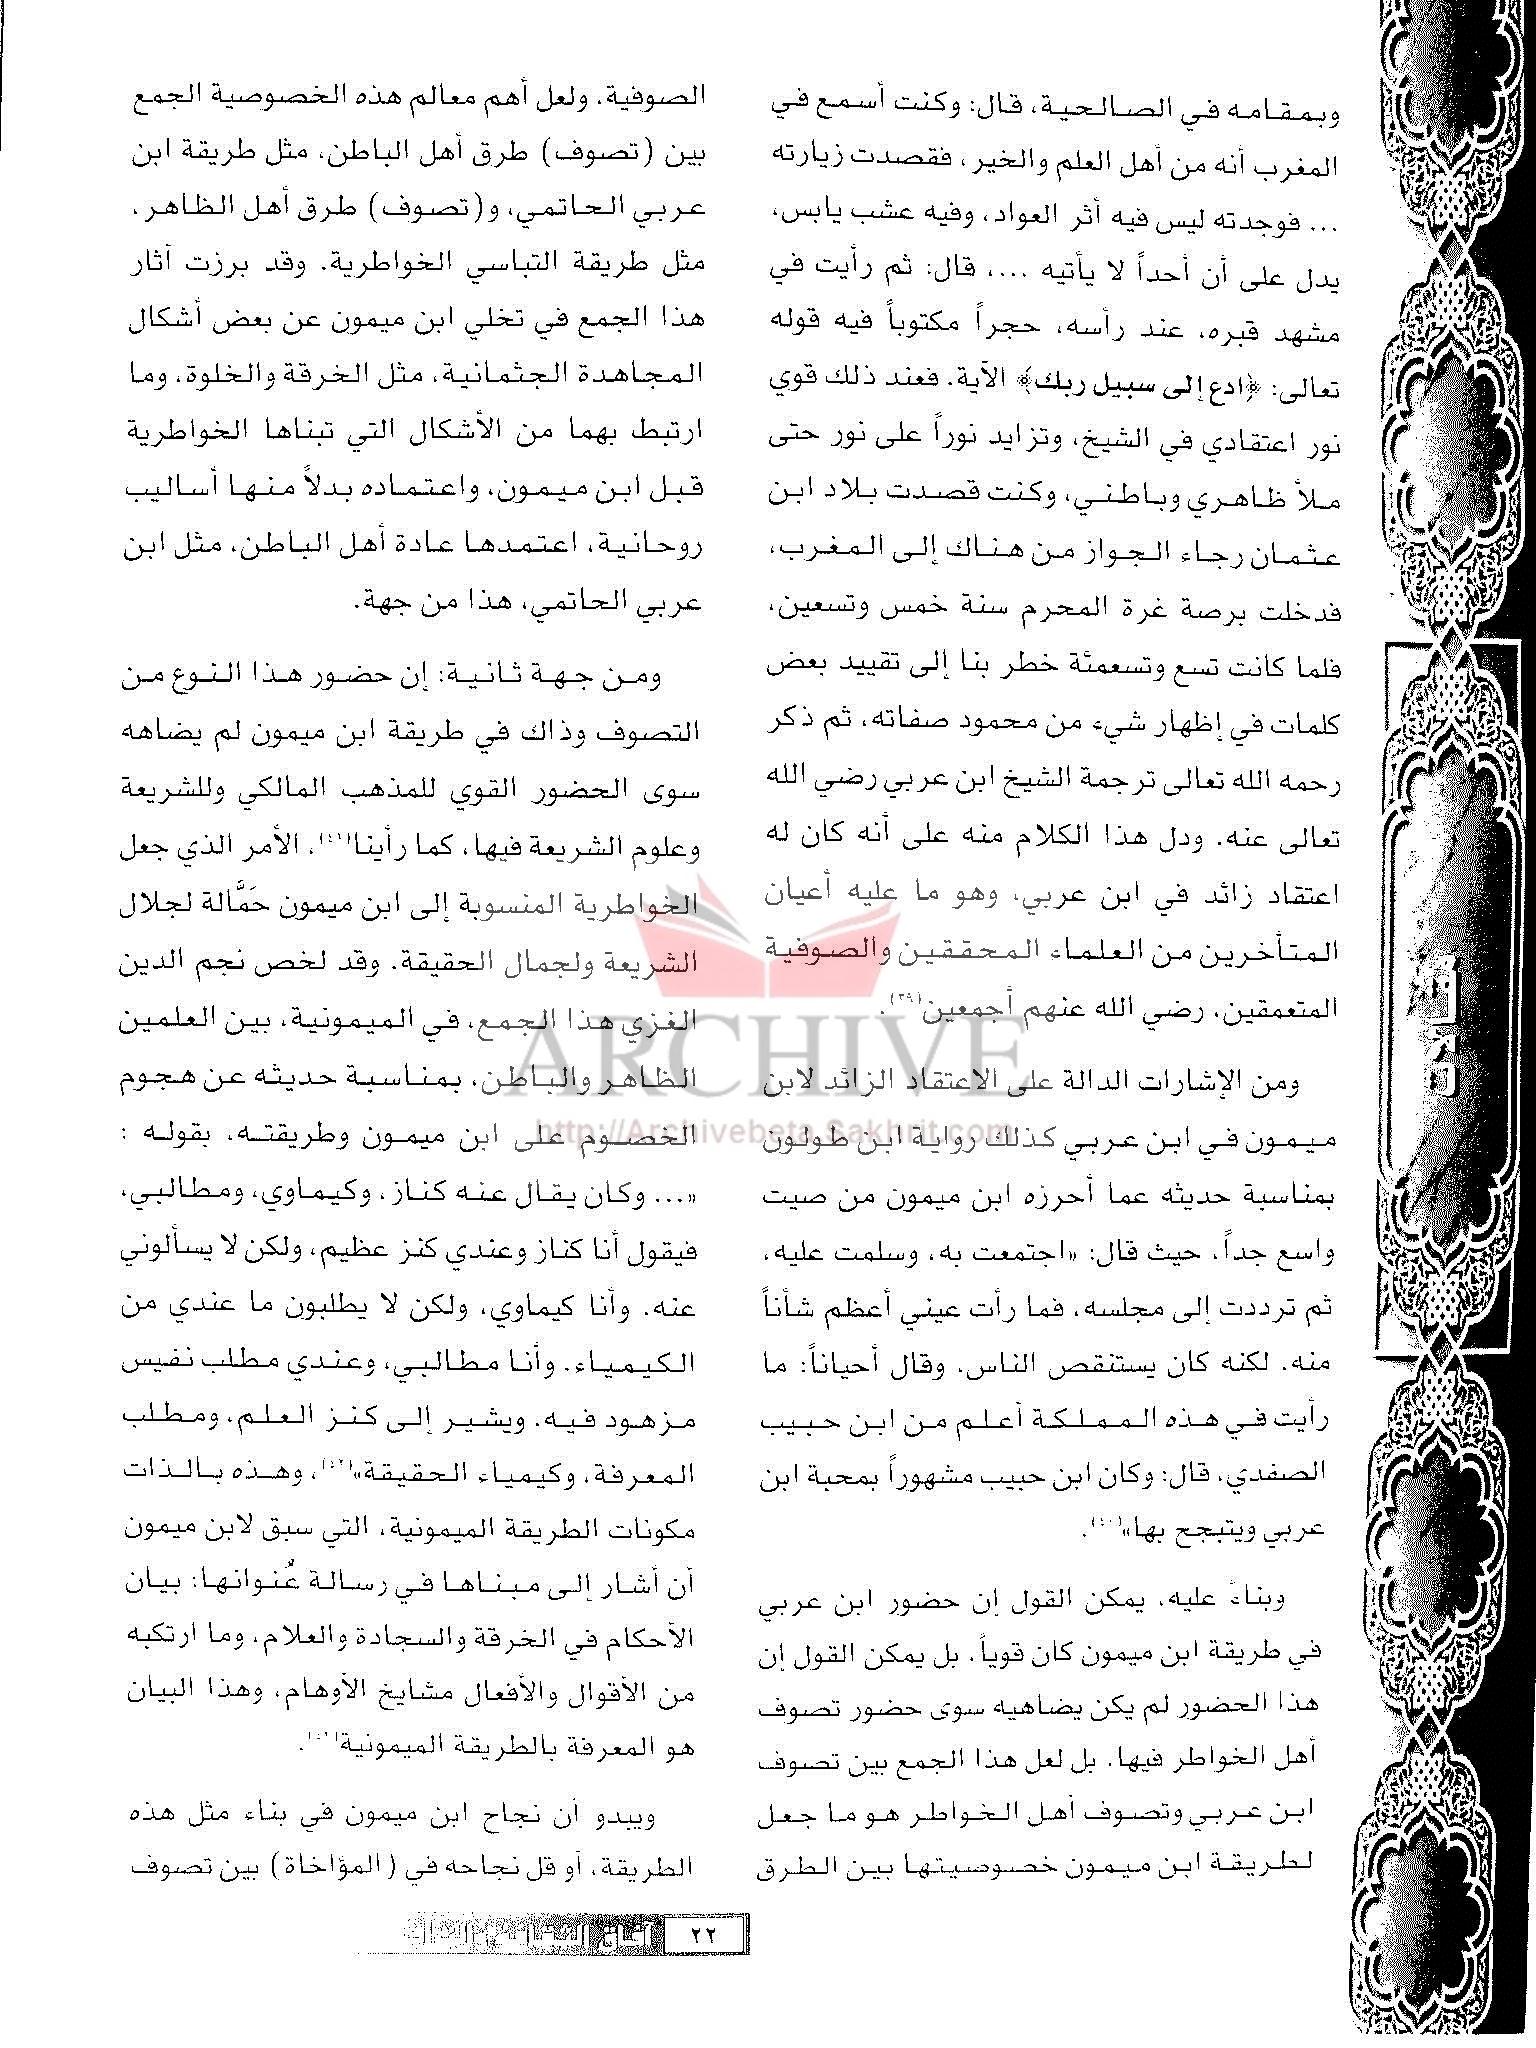 وبمقامه في الصالحية، قال: وكنت أسمع في
المغرب أنه من أهل العلم والخير، فقصدت زيارته
... فوجدته ليس فيه أثر العواد، وفيه عشب يابس،
يدل على أن أحداً لا يأتيه ....، قال: ثم رأيت في
مشهد قبره، عند رأسه، حجراً مكتوباً فيه قوله
تعالى: ﴿ادع إلى سبيل ربك﴾ الآية. فعند ذلك قوي
نور اعتقادي في الشيخ، وتزايد نوراً على نور حتى
ملأ ظاهري وباطني، وكنت قصدت بلاد ابن
عثمان رجاء الجواز من هناك إلى المغرب،
فدخلت برصة غرة المحرم سنة خمس وتسعين،
فلما كانت تسع وتسعمئة خطر بنا إلى تقييد بعض
كلمات في إظهار شيء من محمود صفاته، ثم ذكر
رحمه الله تعالى ترجمة الشيخ ابن عربي رضي الله
تعالى عنه. ودل هذا الكلام منه على أنه كان له
اعتقاد زائد في ابن عربي، وهو ما عليه أعيان
المتأخرين من العلماء المحققين والصوفية
المتعمقين، رضي الله عنهم أجمعين(٣٩).
ومن الإشارات الدالة على الاعتقاد الزائد لابن
ميمون في ابن عربي كذلك رواية ابن طولون
بمناسبة حديثه عما أحرزه ابن ميمون من صيت
واسع جداً، حيث قال: «اجتمعت به، وسلمت عليه،
ثم ترددت إلى مجلسه، فما رأت عيني أعظم شأناً
منه. لكنه كان يستنقص الناس. وقال أحياناً: ما
رأيت في هذه المملكة أعلم من ابن حبيب
الصفدي، قال: وكان ابن حبيب مشهوراً بمحبة ابن
عربي ويتبجح بها»(٤٠).
وبناء عليه، يمكن القول إن حضور ابن عربي
في طريقة ابن ميمون كان قوياً. بل يمكن القول إن
هذا الحضور لم يكن يضاهيه سوى حضور تصوف
أهل الخواطر فيها. بل لعل هذا الجمع بين تصوف
ابن عربي وتصوف أهل الخواطر هو ما جعل
لطريقة ابن ميمون خصوصيتها بين الطرق
الصوفية، ولعل أهم معالم هذه الخصوصية الجمع
بين (تصوف) طرق أهل الباطن، مثل طريقة ابن
عربي الحاتمي، و(تصوف) طرق أهل الظاهر،
مثل طريقة التباسي الخواطرية. وقد برزت آثار
هذا الجمع في تخلي ابن ميمون عن بعض أشكال
المجاهدة الجثمانية، مثل الخرقة والخلوة، وما
ارتبط بهما من الأشكال التي تبناها الخواطرية
قبل ابن ميمون، واعتماده بدلاً منها أساليب
روحانية، اعتمدها عادة أهل الباطن، مثل ابن
عربي الحاتمي، هذا من جهة.
ومن جهة ثانية: إن حضور هذا النوع من
التصوف وذاك في طريقة ابن ميمون لم يضاهه
سوى الحضور القوي للمذهب المالكي وللشريعة
وعلوم الشريعة فيها، كما رأينا(٤١)، الأمر الذي جعل
الخواطرية المنسوبة إلى ابن ميمون حَمَّالة لجلال
الشريعة ولجمال الحقيقة. وقد لخص نجم الدين
الغزي هذا الجمع، في الميمونية، بين العلمين
الظاهر والباطن، بمناسبة حديثه عن هجوم
الخصوم على ابن ميمون وطريقته، بقوله :
«... وكان يقال عنه كناز، وكيماوي، ومطالبي،
فيقول أنا كناز وعندي كنز عظيم، ولكن لا يسألوني
عنه. وأنا كيماوي، ولكن لا يطلبون ما عندي من
الكيمياء. وأنا مطالبي، وعندي مطلب نفيس
مزهود فيه. ويشير إلى كنز العلم، ومطلب
المعرفة، وكيمياء الحقيقة»(٤٢)، وهذه بالذات
مكونات الطريقة الميمونية، التي سبق لابن ميمون
أن أشار إلى مبناها في رسالة عُنوانها: بيان
الأحكام في الخرقة والسجادة والعلام، وما ارتكبه
من الأقوال والأفعال مشايخ الأوهام، وهذا البيان
هو المعرفة بالطريقة الميمونية.
ويبدو أن نجاح ابن ميمون في بناء مثل هذه
الطريقة، أو قل نجاحه في (المؤاخاة) بين تصوف
ARCHIVE
http://Archivebeta.Sakhrit.com
٢٢ آفاق الثقافة والتراث